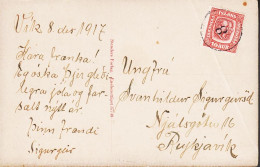 Vík 8 des 1917
Kæra frænka!
Eg óska þjer gleði-
legra jóla og far-
sælt nýtt ár
Þinn frændi
Sigurgeir
Ungfrú
Svanhildur Sigurgeirsd
Njálsgötu 16
Reykjavík